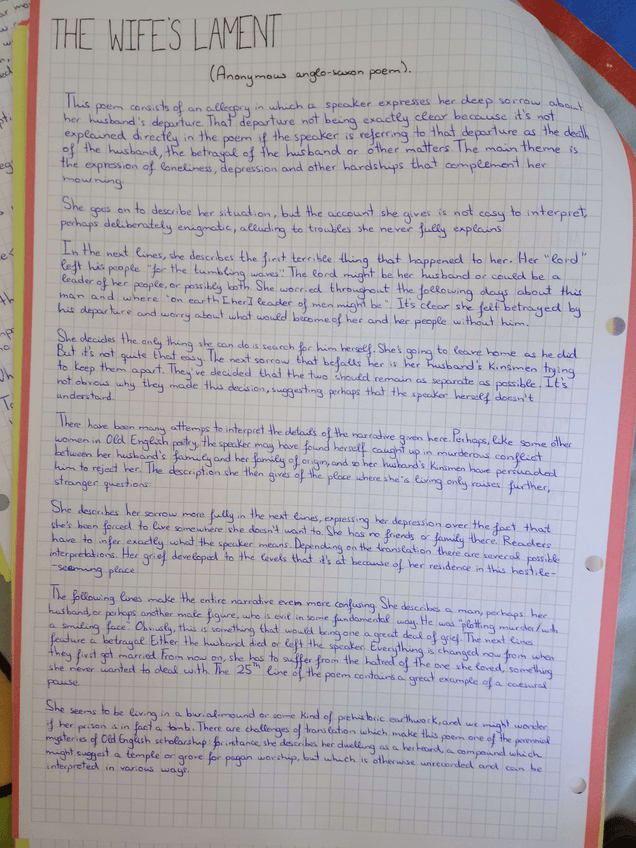 THE WIFE'S LAMENT
(Anonymous anglo-saxon poem).
This poem consists of an allegory in which a speaker expresses her deep sorrow about
her husband's departure. That departure not being exactly clear because it's not
explained directly in the poem if the speaker is referring to that departure as the death
of the husband, the betrayal of the husband or other matters. The main theme is
the expression of loneliness, depression and other hardships that complement her
mourning.
She goes on to describe her situation, but the account she gives is not easy to interpret,
perhaps deliberately enigmatic, alluding to troubles she never fully explains
In the next lines, she describes the first terrible thing that happened to her. Her "lord"
left his people "for the tumbling waves". The lord might be her husband or could be a
leader of her people, or possibly both. She worried throughout the following days about this
man and where "on earth [her] leader of men might be". It's clear she felt betrayed by
his departure and worry about what would become of her and her people without him.
She decides the only thing she can do is search for him herself. She's going to leave home as he did.
But it's not quite that easy. The next sorrow that befalls her is her husband's kinsmen trying
to keep them apart. They've decided that the two should remain as separate as possible. It's
not obvious why they made this decision, suggesting perhaps that the speaker herself doesn't
understand.
There have been many attemps to interpret the details of the narrative given here. Perhaps, like some other
women in Old English poetry, the speaker may have found herself caught up in murderous conflict
between her husband's family and her family of origin, and so her husband's kinsmen have persuaded
him to reject her. The description she then gives of the place where she is living only raises further,
stranger questions:
She describes her sorrow more fully in the next lines, expressing her depression over the fact that
she's been forced to live somewhere she doesn't want to. She has no friends or family there. Readers
have to infer exactly what the speaker means. Depending on the translation there are several possible
interpretations. Her grief developed to the levels that it's at because of her residence in this hostile-
-seeming place.
The following lines make the entire narrative even more confusing. She describes a man, perhaps her
husband, or perhaps another male figure, who is evil in some fundamental way. He was "plotting murder/with
a smiling face". Obviously, this is something that would bring one a great deal of grief. The next lines
feature a betrayal. Either the husband died or left the speaker. Everything is changed now from when
they first got married. From now on, she has to suffer from the hatred of the one she loved, something
she never wanted to deal with. The 25th line of the poem contains a great example of a caesural
pause.
She seems to be living in a burial-mound or some kind of prehistoric earthwork, and we might wonder
if her prison is in fact a tomb. There are challenges of translation which make this poem one of the perennial
mysteries of Old English scholarship: for instance, she describes her dwelling as a herheard, a compound which
might suggest a temple or grove for pagan worship, but which is otherwise unrecorded and can be
interpreted in various ways.